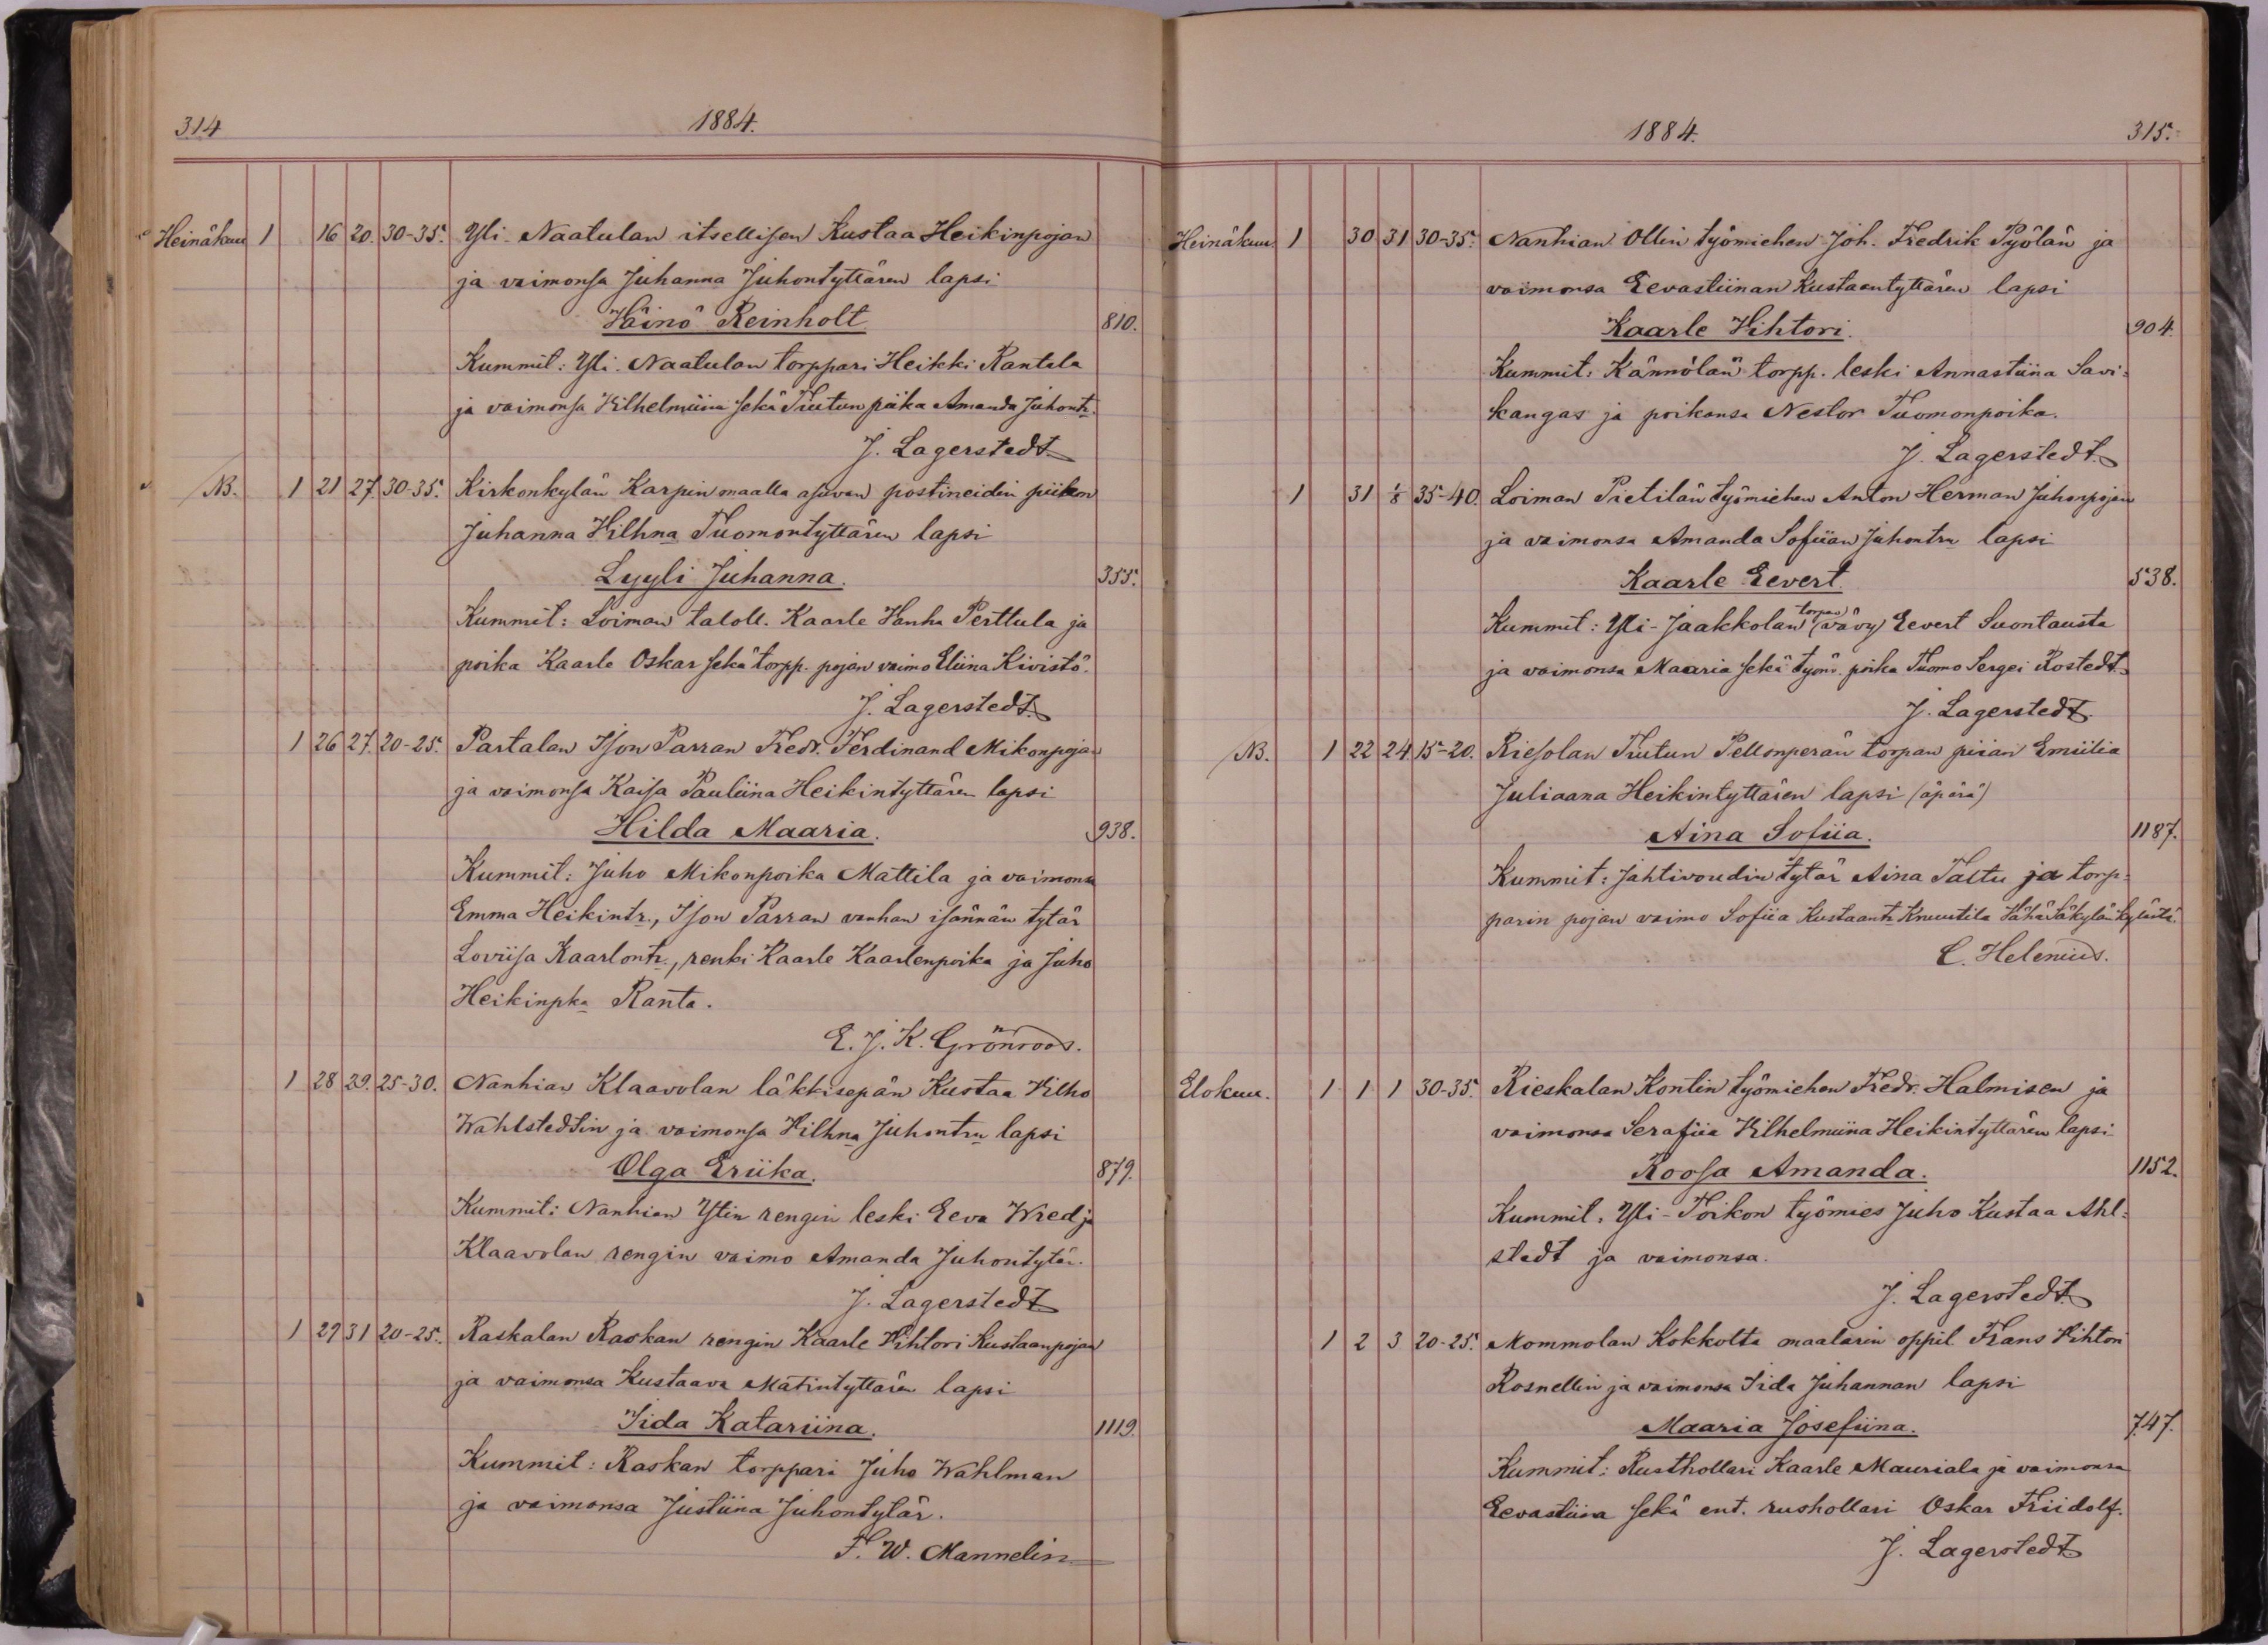 314
1884.
Heinäkuu 1 16 20. 30-35. Yli-Naatulan itsellisen Kustaa Heikinpojan
ja vaimonsa Juhanna Juhontyttären lapsi
Wäinö Reinholt 810.
Kummit: Yli-Naatulan torppari Heikki Rantala
ja vaimonsa Wilhelmiina sekä Tiutun piika Amanda Juhontr.
J. Lagerstedt
NB. 1 21 27 30-35. Kirkonkylän Karpin maalla asuvan postineidin piikan
Juhanna Wilhna Tuomontyttären lapsi
Lyyli Juhanna. 355.
Kummit: Loiman taloll. Kaarle Wanha Perttula ja
poika Kaarle Oskar sekä torpp. pojan vaimo Eliina Kivistö.
J. Lagerstedt.
1 26 27. 20-25. Partalan Ison Parran Fredr. Ferdinand Mikonpojan
ja vaimonsa Kaisa Pauliina Heikintyttären lapsi
Hilda Maaria. 938.
Kummit: Juho Mikonpoika Mattila ja vaimonsa
Emma Heikintr., Ison Parran vanhan isännän tytär
Loviisa Kaarlontr., renki Kaarle Kaarlenpoika ja Juho
Heikinpka Ranta.
E. J. K. Grönroos.
1 28 29. 25-30. Nanhian Klaavolan läkkisepän Kustaa Wilho
Wahlstedtin ja vaimonsa Wilhna Juhontrn lapsi
Olga Eriika. 879.
Kummit: Nanhian Ylin rengin leski Eeva Wred ja
Klaavolan rengin vaimo Amanda Juhontytär.
J. Lagerstedt
1 29 31 20-25. Raskalan Raskan rengin Kaarle Wihtori Kustaanpojan
ja vaimonsa Kustaava Matintyttären lapsi
Iida Katariina. 1119.
Kummit: Raskan torppari Juho Wahlman
ja vaimonsa Justiina Juhontytär.
F. W. Mannelin
1884.
315.
Heinäkuu. 1 30 31 30-35. Nanhian Ollin työmiehen Joh. Fredrik Pyölän ja
vaimonsa Eevastiinan Kustaantyttären lapsi
Kaarle Wihtori. 904.
Kummit: Kännölän torpp. leski Annastiina Savi-
kangas ja poikansa Nestor Tuomonpoika.
J. Lagerstedt.
1 31 1/8 35-40. Loiman Pietilän työmiehen Anton Herman Juhonpojan
ja vaimonsa Amanda Sofiian Juhontrn lapsi
Kaarle Eevert 538.
Kummit: Yli-Jaakkolan torpan (vävy) Eevert Suontausta
ja vaimonsa Maaria sekä työm. poika Tuomo Sergei Rostedt.
J. Lagerstedt.
NB. 1 22 24 15-20. Riesolan Tiutun Pellonperän torpan piian Emiilia
Juliaana Heikintyttären lapsi (äpärä)
Aina Sofiia. 1187.
Kummit: Jahtivoudin tytär Aina Taltu ja torp-
parin pojan vaimo Sofiia Kustaantr Knuutila Wähä Säkylän kylästä.
C. Helenius.
Elokuu. 1 1 1 30-35. Rieskalan Kontin työmiehen Fredr. Halmisen ja
vaimonsa Serafiia Wilhelmiina Heikintyttären lapsi
Roosa Amanda. 1152.
Kummit. Yli-Toikon työmies Juho Kustaa Ahl-
stedt ja vaimonsa.
J. Lagerstedt.
1 2 3 20-25. Mommolan Kokkolta maalarin oppil. Frans Wihtori
Rosnellin ja vaimonsa Iida Juhannan lapsi
Maaria Josefiina. 747.
Kummit: Rusthollari Kaarle Mauriala ja vaimonsa
Eevastiina sekä ent. rushollari Oskar Friidolf.
J. Lagerstedt